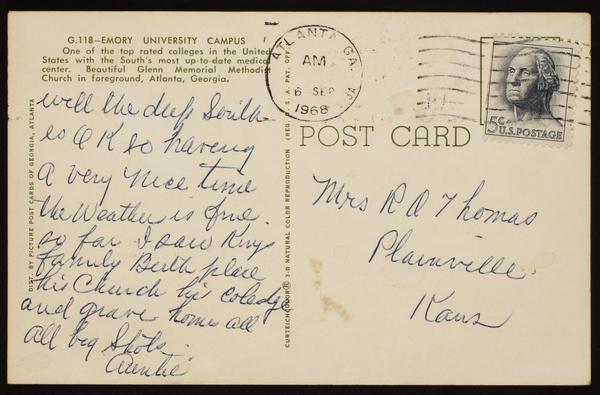 G.118—EMORY UNIVERSITY CAMPUS
One of the top rated colleges in the United
States with the South's most up-to-date medical
center. Beautiful Glenn Memorial Methodist
Church in foreground, Atlanta, Georgia.
well the deep South
is O K so having
a very nice time
the Weather is fine.
so far I saw Kings
family Birth place
his Church his coledge
and grave homes all
all big Shots.
Auntie
DIST. BY PICTURE POST CARDS OF GEORGIA, ATLANTA
CURTEICHCOLOR® 3-D NATURAL COLOR REPRODUCTION (REG. U. S. A. PAT. OFF.)
ATLANTA, GA.
AM
6 SEP
1968
POST CARD
5¢ U.S. POSTAGE
Mrs R A Thomas
Plainville
Kans